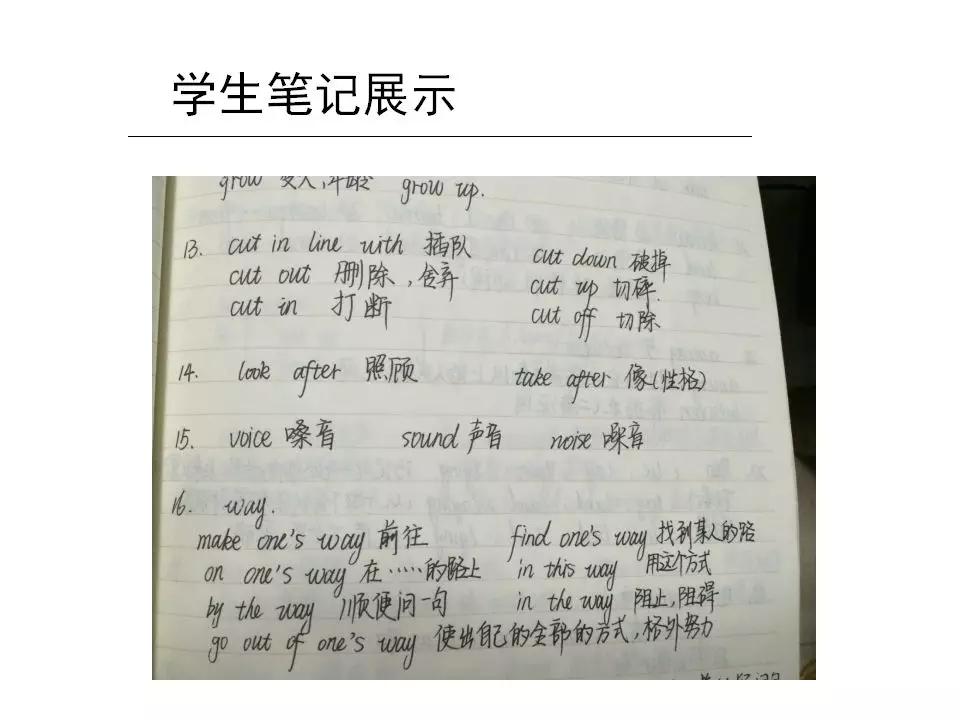 学生笔记展示
grow 变大,年龄 grow up.
13. cut in line with 插队 cut down 破掉
cut out 删除,舍弃 cut up 切碎.
cut in 打断 cut off 切除
14. look after 照顾 take after 像(性格)
15. voice 嗓音 sound 声音 noise 噪音
16. way.
make one's way 前往 find one's way 找到某人的路
on one's way 在……的路上 in this way 用这个方式
by the way 顺便问一句 in the way 阻止,阻碍
go out of one's way 使出自己的全部的方式,格外努力